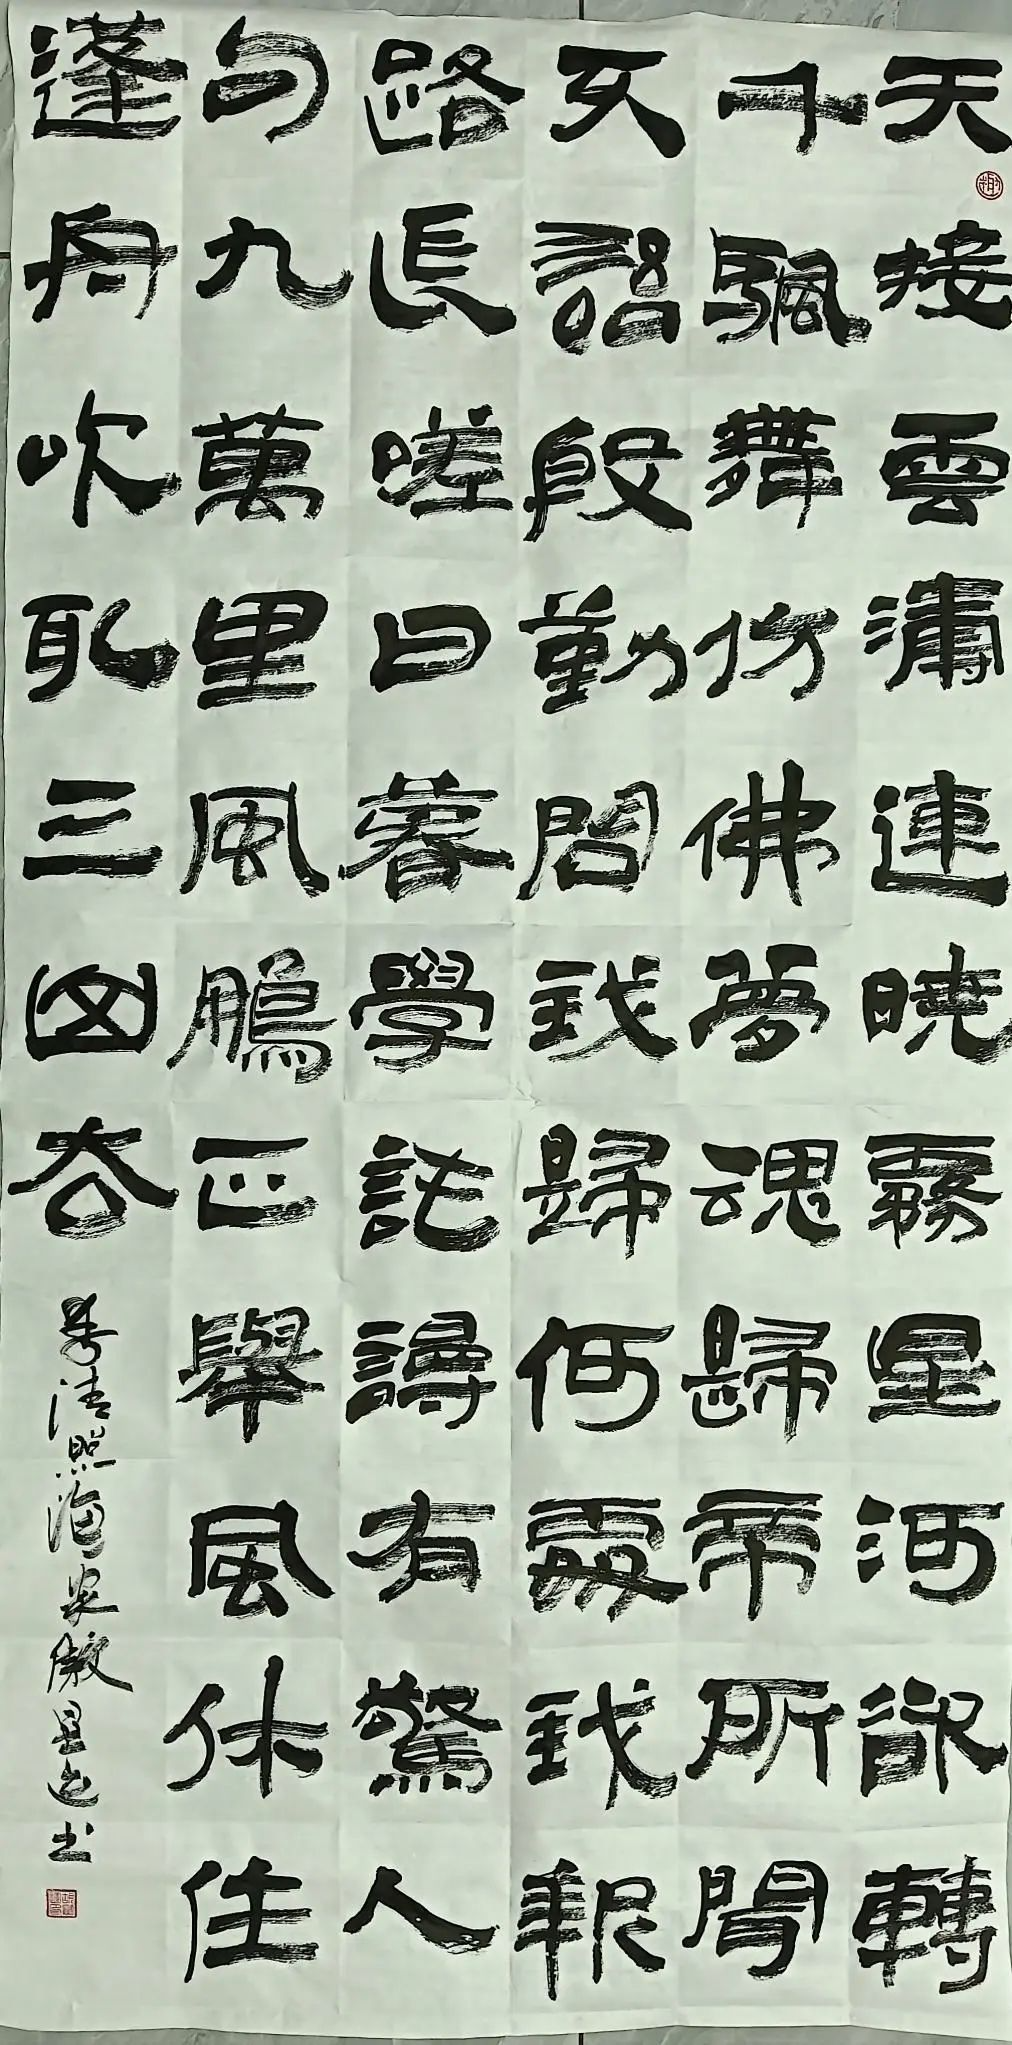 天接雲濤連曉霧星河欲轉
千颿舞仿佛夢魂歸帝所聞
天語殷勤問我歸何處我報
路長嗟日暮學詩謾有驚人
句九萬里風鵬正舉風休住
蓬舟吹取三山去
李清照漁家傲書